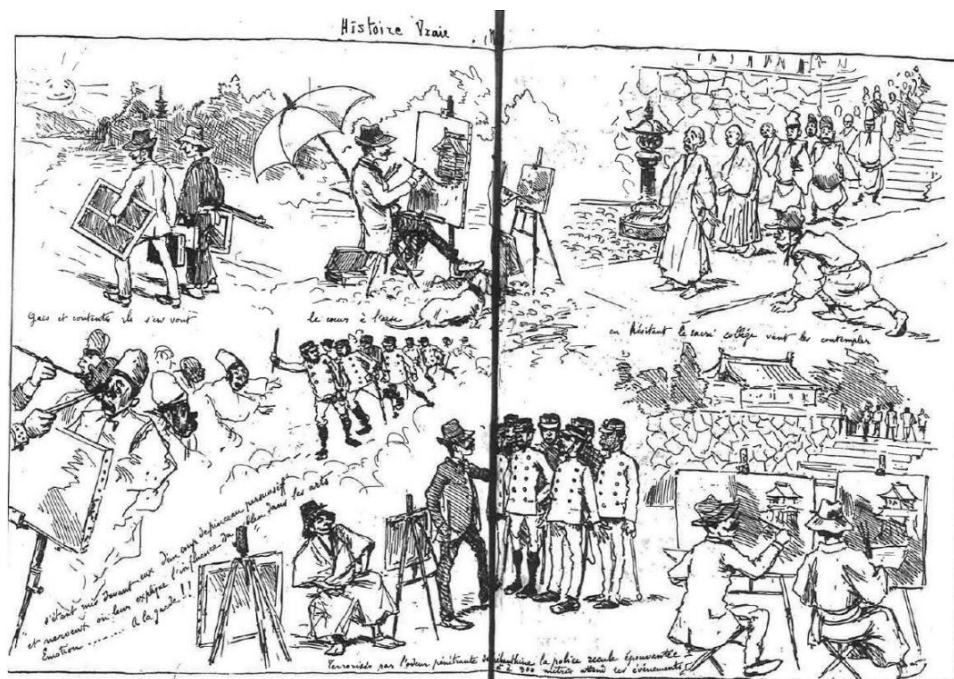 Histoire Vraie
Gais et contents ils s'en vont
le cœur à l'aise
en hésitant le sacré collège vient les contempler
s'étant mis devant eux d'un coup de pinceau persuasif
et nerveux on leur explique l'influence du bleu dans les arts
Emotion ....... A la garde !!
Terrorisés par l'odeur pénétrante de la police recule épouvantée
à 300 mètres attend les événements